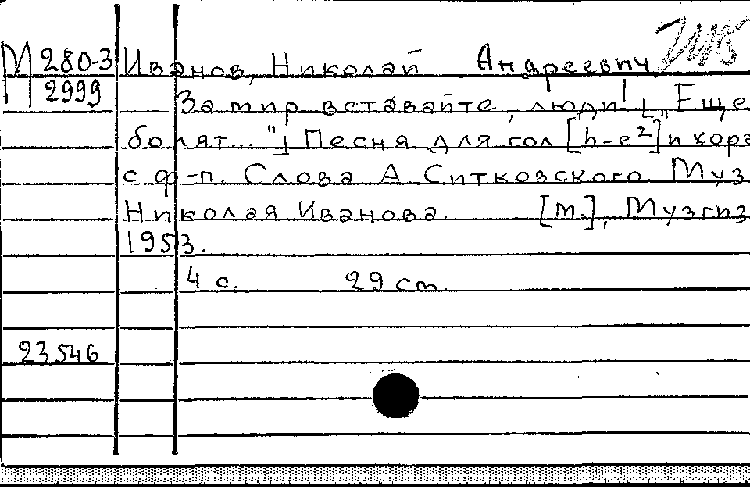 М 280-3 Иванов, Николай Андреевич
2999 За мир вставайте, люди! ["Еще
болят..."] Песня для гол. [h-e²] и хора
с ф-п. Слова А. Ситковского. Муз.
Николая Иванова. [М.], Музгиз
1953.
4 с. 29 см.
23546